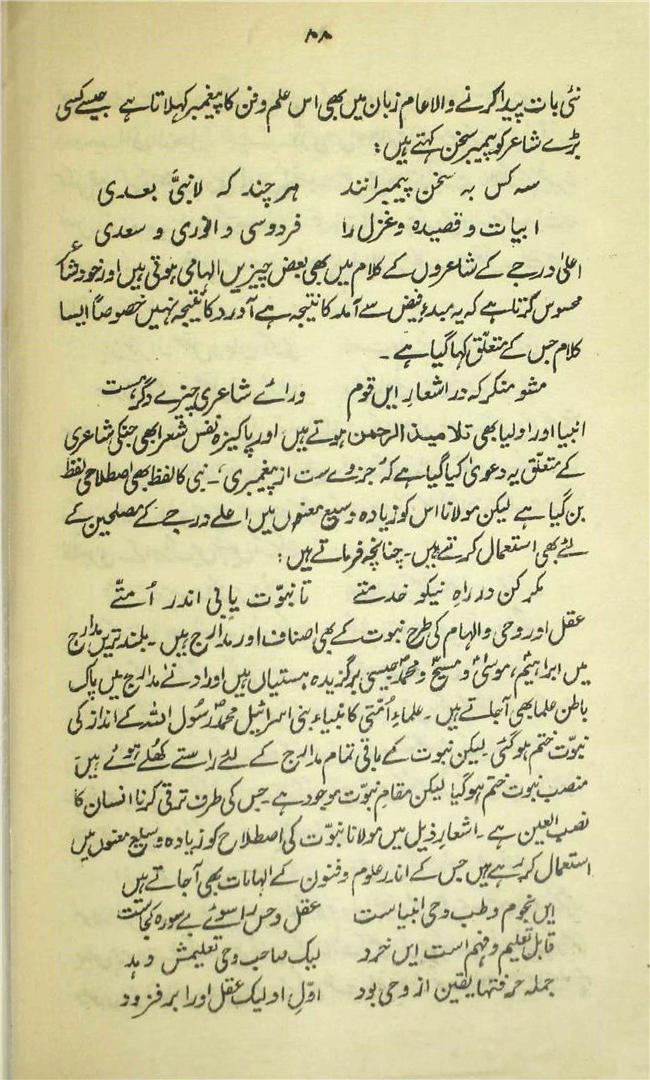 ۱۰۸
نئی بات پیدا کرنے والا عام زبان میں بھی اس علم و فن کا پیغمبر کہلاتا ہے جیسے کسی
بڑے شاعر کو پیمبر سخن کہتے ہیں:
سہ کس بہ سخن پیمبرانند ہر چند کہ لانبیَّ بعدی
ابیات و قصیدہ و غزل را فردوسی و انوری و سعدی
اعلیٰ درجے کے شاعروں کے کلام میں بھی بعض چیزیں الہامی ہوتی ہیں اور خود شاعر
محسوس کرتا ہے کہ یہ مبدءِ فیض سے آمد کا نتیجہ ہے آورد کا نتیجہ نہیں خصوصاً ایسا
کلام جس کے متعلق کہا گیا ہے۔
مشو منکر کہ در اشعارِ ایں قوم ورائے شاعری چیزے دگر ہست
انبیا اور اولیا بھی تلامیذ الرحمن ہوتے ہیں اور پاکیزہ نفس شعرا بھی جنکی شاعری
کے متعلق یہ دعویٰ کیا گیا ہے کہ ’جزوے ست از پیغمبری‘۔ نبی کا لفظ بھی اصطلاحی لفظ
بن گیا ہے لیکن مولانا اس کو زیادہ وسیع معنوں میں اعلے درجے کے مصلحین کے
لئے بھی استعمال کرتے ہیں۔ چنانچہ فرماتے ہیں:
مکر کن در راہِ نیکو خدمتے تا نبوّت یابی اندر اُمتّے
عقل اور وحی و الہام کی طرح نبوت کے بھی اصناف اور مدارج ہیں۔ بلند ترین مدارج
میں ابراہیمؑ، موسیٰؑ و مسیحؑ و محمدؐ جیسی برگزیدہ ہستیاں ہیں اور ادنےٰ مدارج میں پاک
باطن علما بھی آجاتے ہیں۔ علماءِ اُمّتی کانبیاءِ بنی اسرائیل محمدؐ رسُول اللہ کے انداز کی
نبوّت ختم ہو گئی۔ لیکن نبوت کے باقی تمام مدارج کے لئے راستے کھُلے ہوئے ہیں
منصب نبوت ختم ہو گیا لیکن مقامِ نبوّت موجود ہے۔ جس کی طرف ترقی کرنا انسان کا
نصب العین ہے۔ اشعار ذیل میں مولانا نبوّت کی اصطلاح کو زیادہ وسیع معنوں میں
استعمال کر رہے ہیں جس کے اندر علوم و فنون کے الہامات بھی آجاتے ہیں
ایں نجوم و طب وحی انبیاست عقل و حس را سوئے بے سورہ کجاست
قابل تعلیم و فہم است ایں خرد لیک صاحب وحی تعلیمش دہد
جملہ حرفتہا یقین از وحی بود اوّلِ او لیک عقل اورا بر فزود